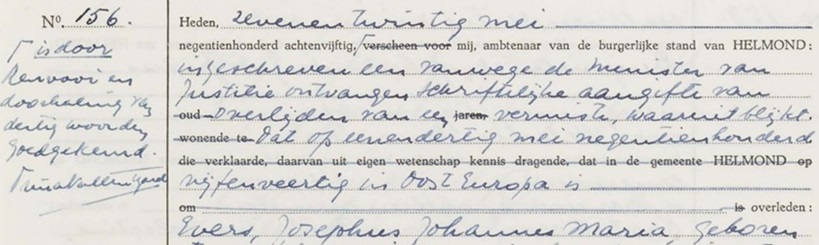 No. 156.
Heden, zevenentwintig mei
negentienhonderd achtenvijftig, verscheen voor mij, ambtenaar van de burgerlijke stand van HELMOND:
ingeschreven een vanwege de Minister van
Justitie ontvangen schriftelijke aangifte van
oud overlijden van een jaren, vermiste, waaruit blijkt.
wonende te dat op eenendertig mei negentienhonderd
die verklaarde, daarvan uit eigen wetenschap kennis dragende, dat in de gemeente HELMOND op
vijfenveertig in Oost Europa is
om is overleden:
Evers, Josephus Johannes Maria, geboren
is door
Renvooi en
doorhaling van
dertig woorden
goedgekeurd.